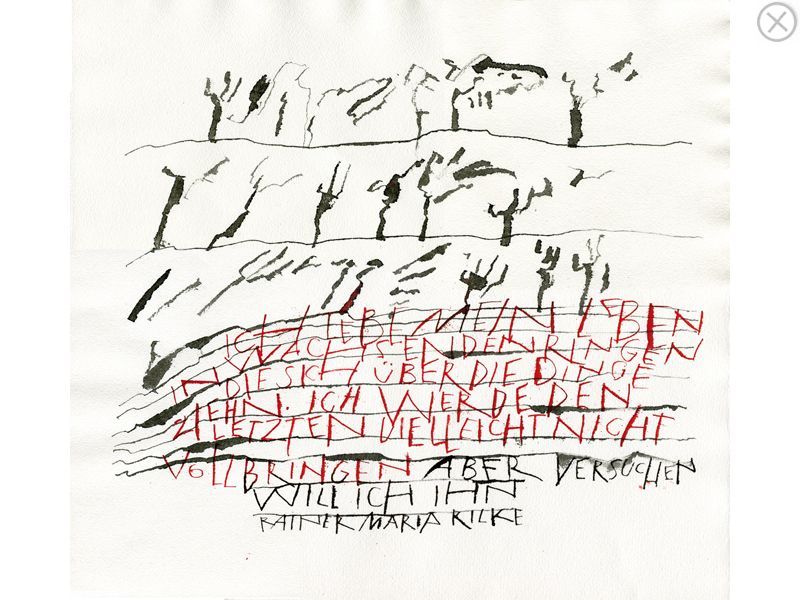 ICH LIEBE MEIN LEBEN
IN WACHSENDEN RINGEN
DIE SICH ÜBER DIE DINGE
ZIEHN. ICH WERDE DEN
LETZTEN VIELLEICHT NICHT
VOLLBRINGEN ABER VERSUCHEN
WILL ICH IHN
RAINER MARIA RILKE